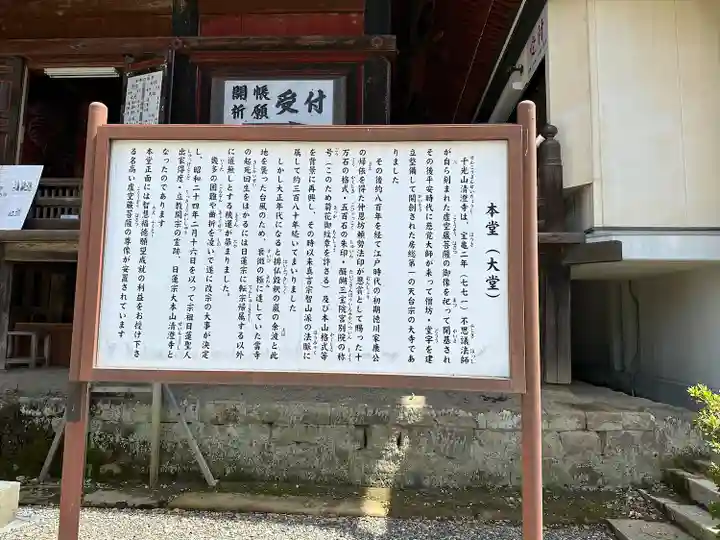 開帳
祈願
受付
本堂（大堂）
千光山清澄寺は、宝亀二年（七七一）不思議法師
が自ら刻まれた虚空蔵菩薩の御像を祀って開基され
その後平安時代に慈覚大師が来って僧坊・堂宇を建
立整備して開創された房総第一の天台宗の大寺であ
りました
その後約八百年を経て江戸時代の初期徳川家康公
の帰依を得た仲恩坊頼勢法印が恩賞として賜った十
万石の格式・五百石の朱印・醍醐三宝院宮別院の称
号（このため菊花御紋章を許さる）及び本山格式等
を背景に再興し、その時以来真言宗智山派の法脈に
属して約三百八十年続いてまいりました
しかし大正年代になると排仏毀釈の嵐の余波と此
地を襲った台風のため、衰微の極に達していた當寺
の起死回生をはかるには日蓮宗に転宗帰属する以外
に道無しとする機運が募まりました。
幾多の困難や曲折を凌いで遂に改宗の大事が決定
し、昭和二十四年二月十六日を以って宗祖日蓮聖人
出家得度・立教開宗の霊跡、日蓮宗大本山清澄寺と
なったのであります
本堂正面には智慧福徳願望成就の利益をお授け下さ
る名高い虚空蔵菩薩の尊像が安置されています